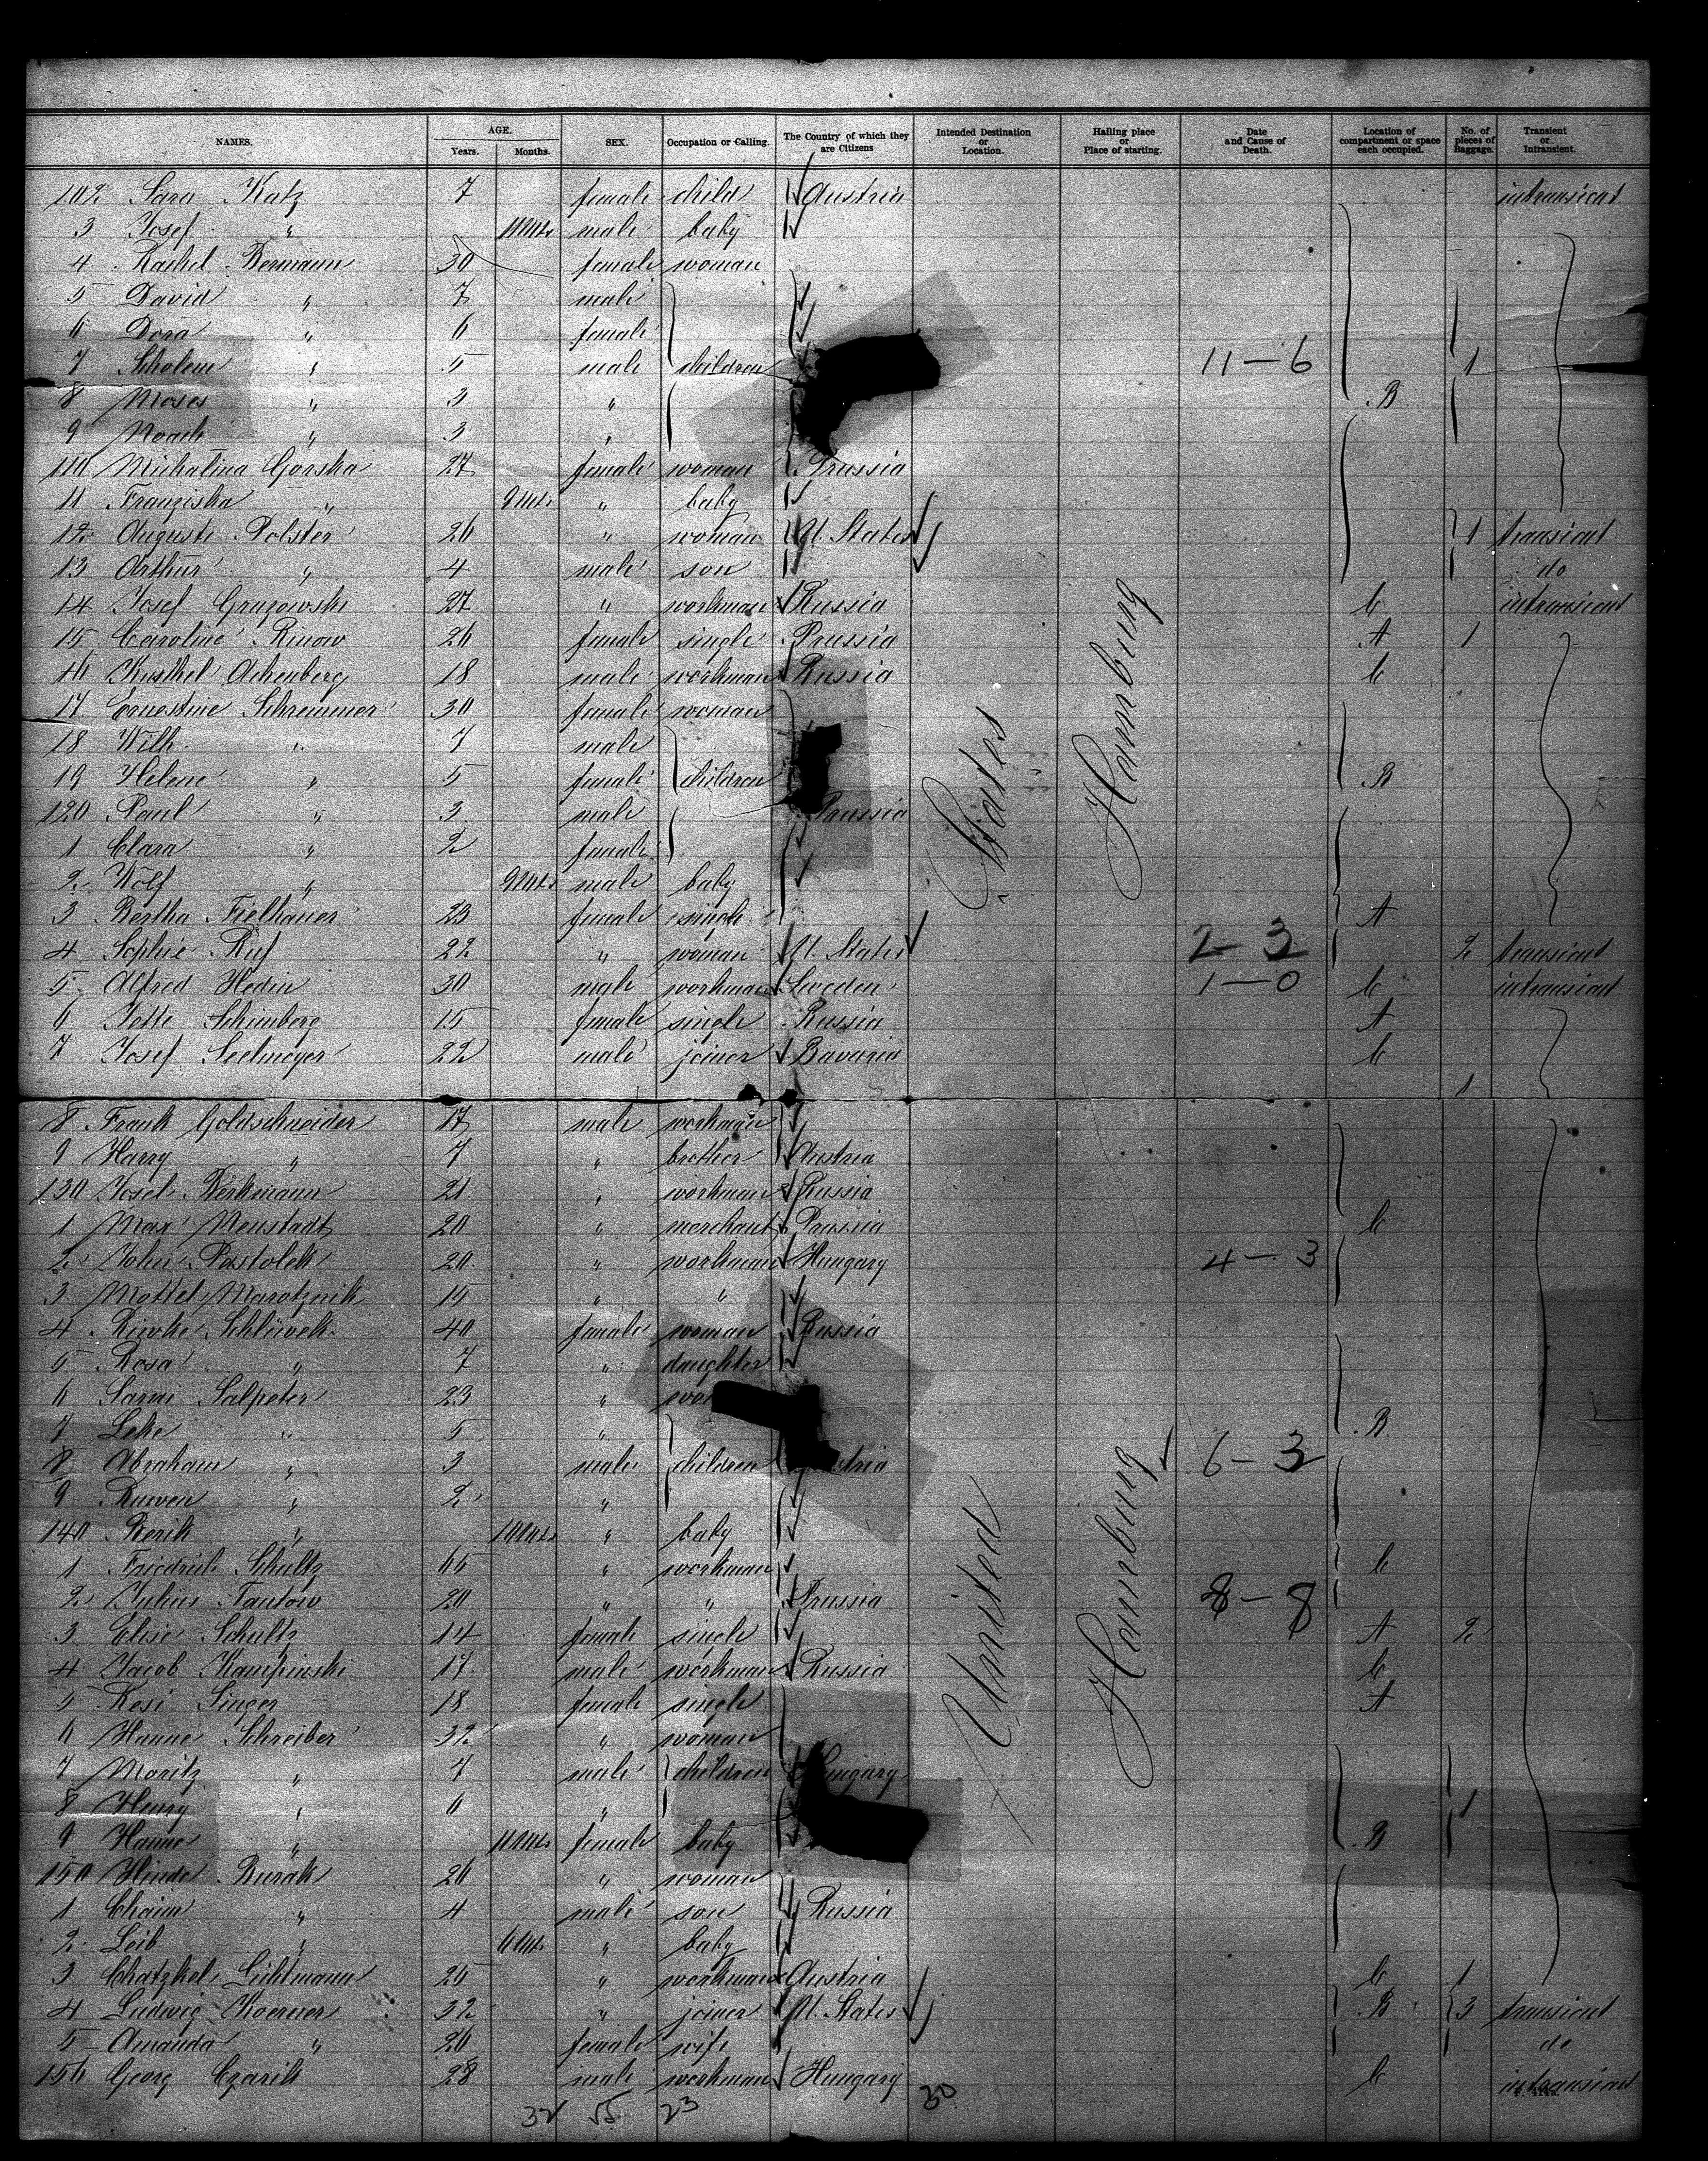 NAMES. AGE. Years. Months. SEX. Occupation or Calling. The Country of which they are Citizens Intended Destination or Location. Hailing place or Place of starting. Date and Cause of Death. Location of compartment or space each occupied. No. of pieces of Baggage. Transient or Intransient.
102 Sara Katz 7 female child Austria intransient
3 Josef " 11 Mts male baby
4 Rachel Bermann 30 female woman
5 David " 7 male
6 Dora " 6 female
7 Scholem " 5 male children 11-6 1
8 Moses " 3 " B
9 Noach " 3 "
110 Michalina Gorska 27 female woman Prussia
11 Franziska " 9 Mts " baby
12 Auguste Polster 26 " woman U. States 1 transient
13 Arthur " 4 male son do
14 Josef Gruzowski 27 " workman Russia C intransient
15 Caroline Rinow 26 female single Prussia A 1
16 Kuschel Achenberg 18 male workman Russia C
17 Ernestine Schremmer 30 female woman
18 Wilh. " 7 male
19 Helene " 5 female children B
120 Paul " 3 male Prussia
1 Clara " 2 female
2 Wolf " 9 Mts male baby
3 Bertha Fielhauer 23 female single A
4 Sophie Ruf 22 " woman U. States 2-3 2 transient
5 Alfred Hedin 30 male workman Sweden 1-0 C intransient
6 Jette Schimberg 15 female single Russia A
7 Josef Seelmeyer 22 male joiner Bavaria C
1
8 Frank Goldschneider 17 male workman
9 Harry " 7 " brother Austria
130 Josel Berkmann 21 " workman Russia
1 Max Neustadt 20 " merchant Prussia C
2 John Pastolek 20 " workman Hungary 4-3
3 Mottel Marotznik 15 " "
4 Riewke Schlüwek 40 female woman Russia
5 Rosa " 7 " daughter
6 Sarni Salpeter 23 "
7 Leke " 5 " B
8 Abraham " 3 male children 6-3
9 Ruwen " 2 "
140 Berik " 10 Mts " baby
1 Friedrich Schultz 65 " workman C
2 Julius Tantow 20 " " Prussia 8-8
3 Elise Schultz 14 female single A 2
4 Jacob Kampinski 17 male workman Russia C
5 Resi Singer 18 female single A
6 Hanne Schreiber 32 " woman
7 Moritz " 7 male children Hungary
8 Henry " 6 " 1
9 Hanne " 11 Mts female baby B
150 Hinde Burak 26 " woman
1 Chaim " 4 male son Russia
2 Leib " 6 Mts " baby
3 Chatzkel Lichtmann 25 " workman Austria C 1
4 Ludwig Koerner 32 " joiner U. States B 3 transient
5 Amanda " 26 female wife do
156 Georg Czarik 28 male workman Hungary C intransient
32 55 23 30
United States
Hamburg
Hamburg